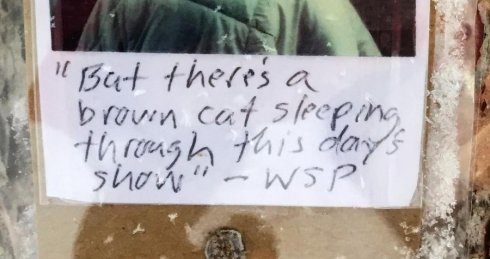 "But there's a
brown cat sleeping
through this day's
show" - WSP